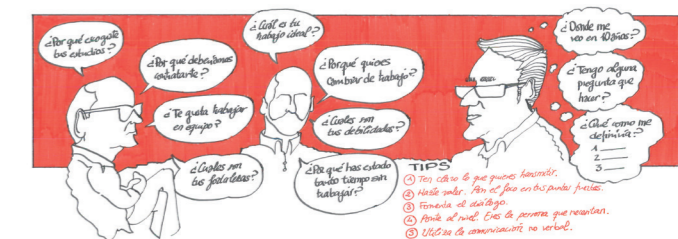 ¿Por qué escogiste
tus estudios?
¿Por qué deberíamos
contratarte?
¿Te gusta trabajar
en equipo?
¿Cuáles son
tus fortalezas?
¿Cuál es tu
trabajo ideal?
¿Porqué quieres
cambiar de trabajo?
¿Cuáles son
tus debilidades?
¿Por qué has estado
tanto tiempo sin
trabajar?
¿Dónde me
veo en 10 años?
¿Tengo alguna
pregunta que
hacer?
¿Qué como me
definiría?
1
2
3
TIPS
1 Ten claro lo que quieres transmitir.
2 Hazte valer. Pon el foco en tus puntos fuertes.
3 Fomenta el diálogo.
4 Ponte al nivel. Eres la persona que necesitan.
5 Utiliza la comunicación no verbal.